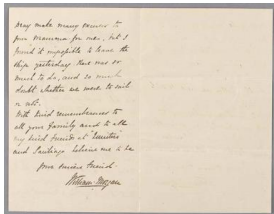 Pray make many excuses to
your Mamma for me, but I
found it impossible to leave the
ship yesterday there was so
much to do, and so much
doubt whether we were to sail
or not.
With kind remembrances to
all your family and to all
my kind friends at
and Santiago believe me to be
your sincere friend
William